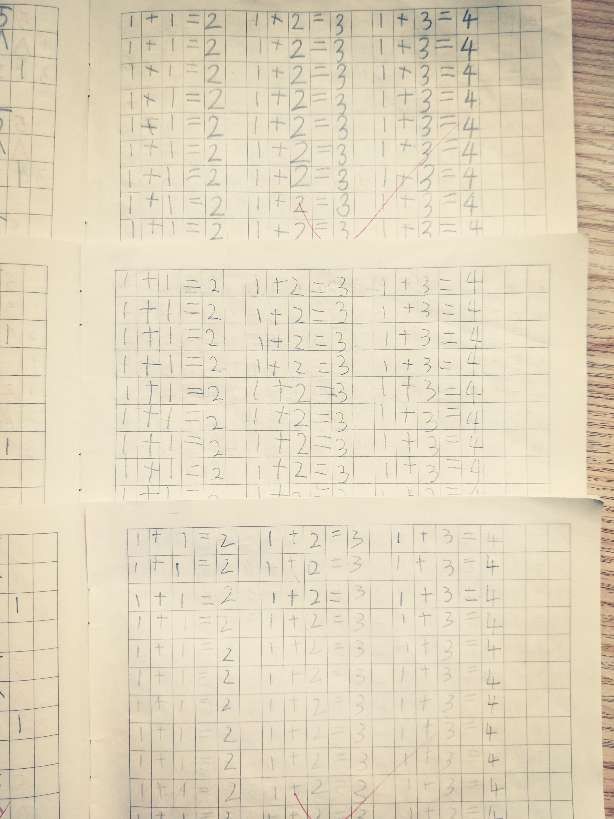 1 + 1 = 2 1 + 2 = 3 1 + 3 = 4
1 + 1 = 2 1 + 2 = 3 1 + 3 = 4
1 1 + 1 = 2 1 + 2 = 3 1 + 3 = 4
1 + 1 = 2 1 + 2 = 3 1 + 3 = 4
1 + 1 = 2 1 + 2 = 3 1 + 3 = 4
1 + 1 = 2 1 + 2 = 3 1 + 3 = 4
1 + 1 = 2 1 + 2 = 3 1 + 3 = 4
1 + 1 = 2 1 + 2 = 3 1 + 3 = 4
1 + 1 = 2 1 + 2 = 3 1 + 3 = 4
1 + 1 = 2 1 + 2 = 3 1 + 3 = 4
1 + 1 = 2 1 + 2 = 3 1 + 3 = 4
1 1 + 1 = 2 1 + 2 = 3 1 + 3 = 4
1 + 1 = 2 1 + 2 = 3 1 + 3 = 4
1 + 1 = 2 1 + 2 = 3 1 + 3 = 4
1 + 1 = 2 1 + 2 = 3 1 + 3 = 4
1 1 + 1 = 2 1 + 2 = 3 1 + 3 = 4
1 + 1 = 2 1 + 2 = 3 1 + 3 = 4
1 + 1 = 2 1 + 2 = 3 1 + 3 = 4
1 + 1 = 2 1 + 2 = 3 1 + 3 = 4
1 1 + 1 = 2 1 + 2 = 3 1 + 3 = 4
1 + 1 = 2 1 + 2 = 3 1 + 3 = 4
1 + 1 = 2 1 + 2 = 3 1 + 3 = 4
1 + 1 = 2 1 + 2 = 3 1 + 3 = 4
1 + 1 = 2 1 + 2 = 3 1 + 3 = 4
1 1 + 1 = 2 1 + 2 = 3 1 + 3 = 4
1 + 1 = 2 1 + 2 = 3 1 + 3 = 4
1 + 1 = 2 1 + 2 1 + 3 = 4